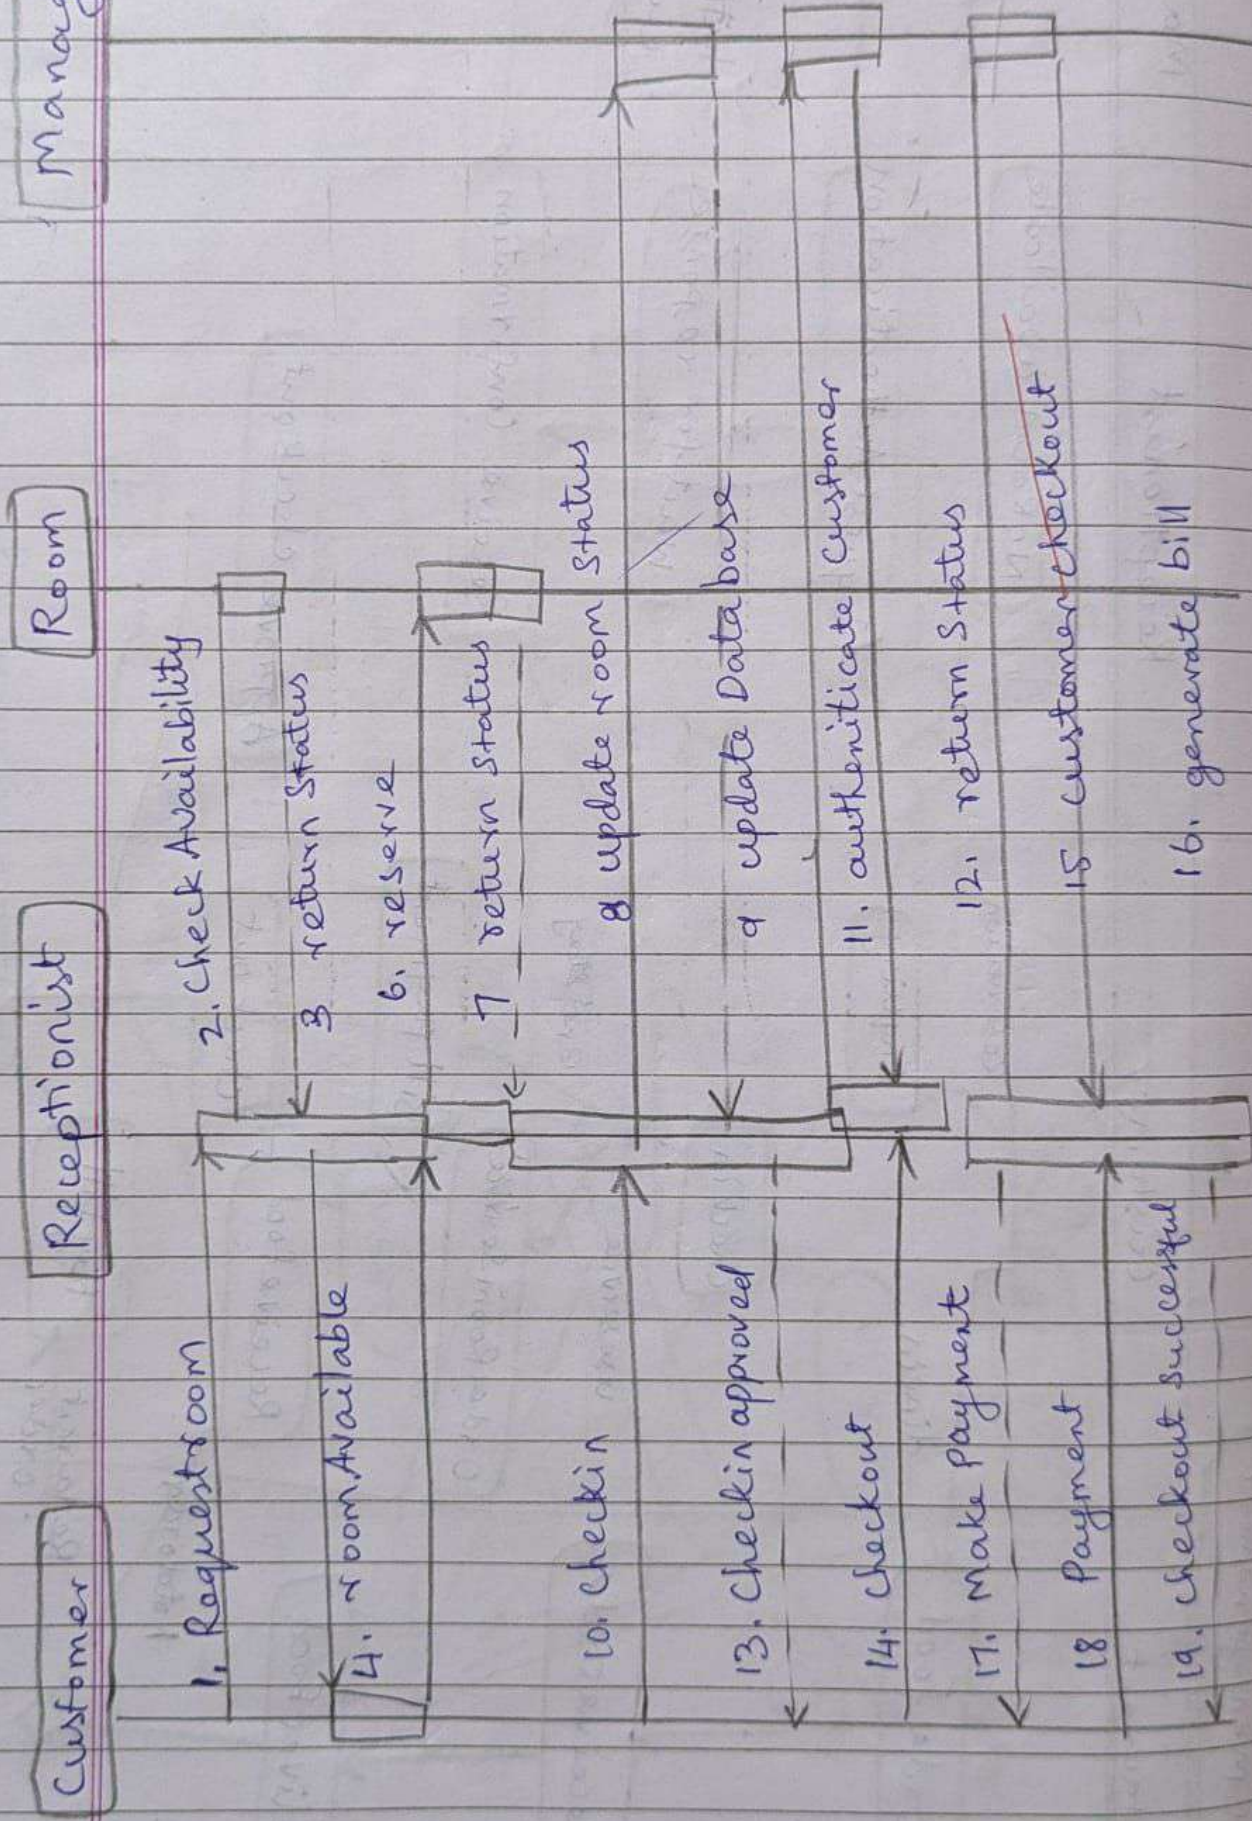 Customer
Receptionist
Room
Manag
1. Requestroom
2. Check Availability
3 return Status
4. roomAvailable
6. reserve
7 return status
8 update room status
9 update Data base
10. Checkin
11. autheniticate customer
12. return Status
13. Checkin approved
14. checkout
15 customer checkout
16. generate bill
17. Make Payment
18 Payment
19. checkout successful